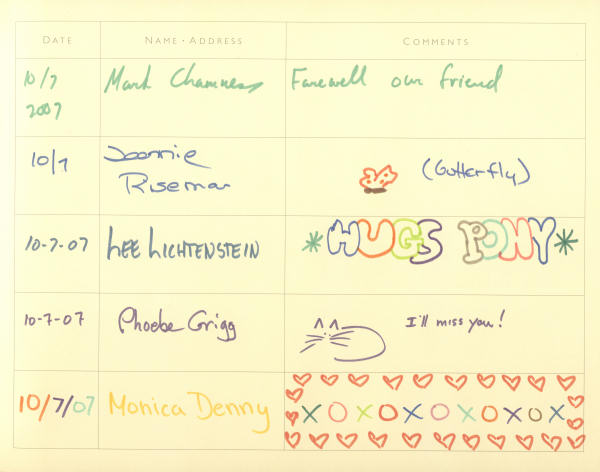 DATE NAME · ADDRESS COMMENTS
10/7 Mark Chamness Farewell our friend
2007
10/7 Joannie (Gutterfly)
Riseman
10-7-07 LEE LICHTENSTEIN * HUGS PONY *
10-7-07 Phoebe Grigg I'll miss you!
10/7/07 Monica Denny XOXOXOXOXOX